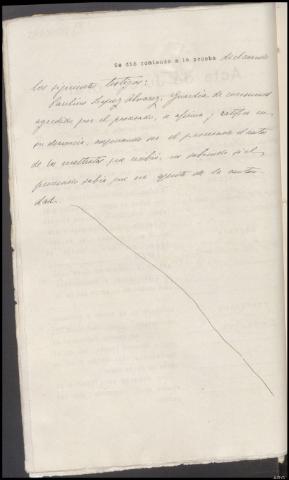 Se dió comienzo a la prueba declarando
los siguientes testigos:
Paulino Lopez Alvarez, Guardia de consumos
agredido por el procesado, se afirma y ratifica en
su denuncia, siendo el procesado el autor
de los maltratos que recibió, no sabiendo si el
procesado sabía que era agente de la autori
dad.